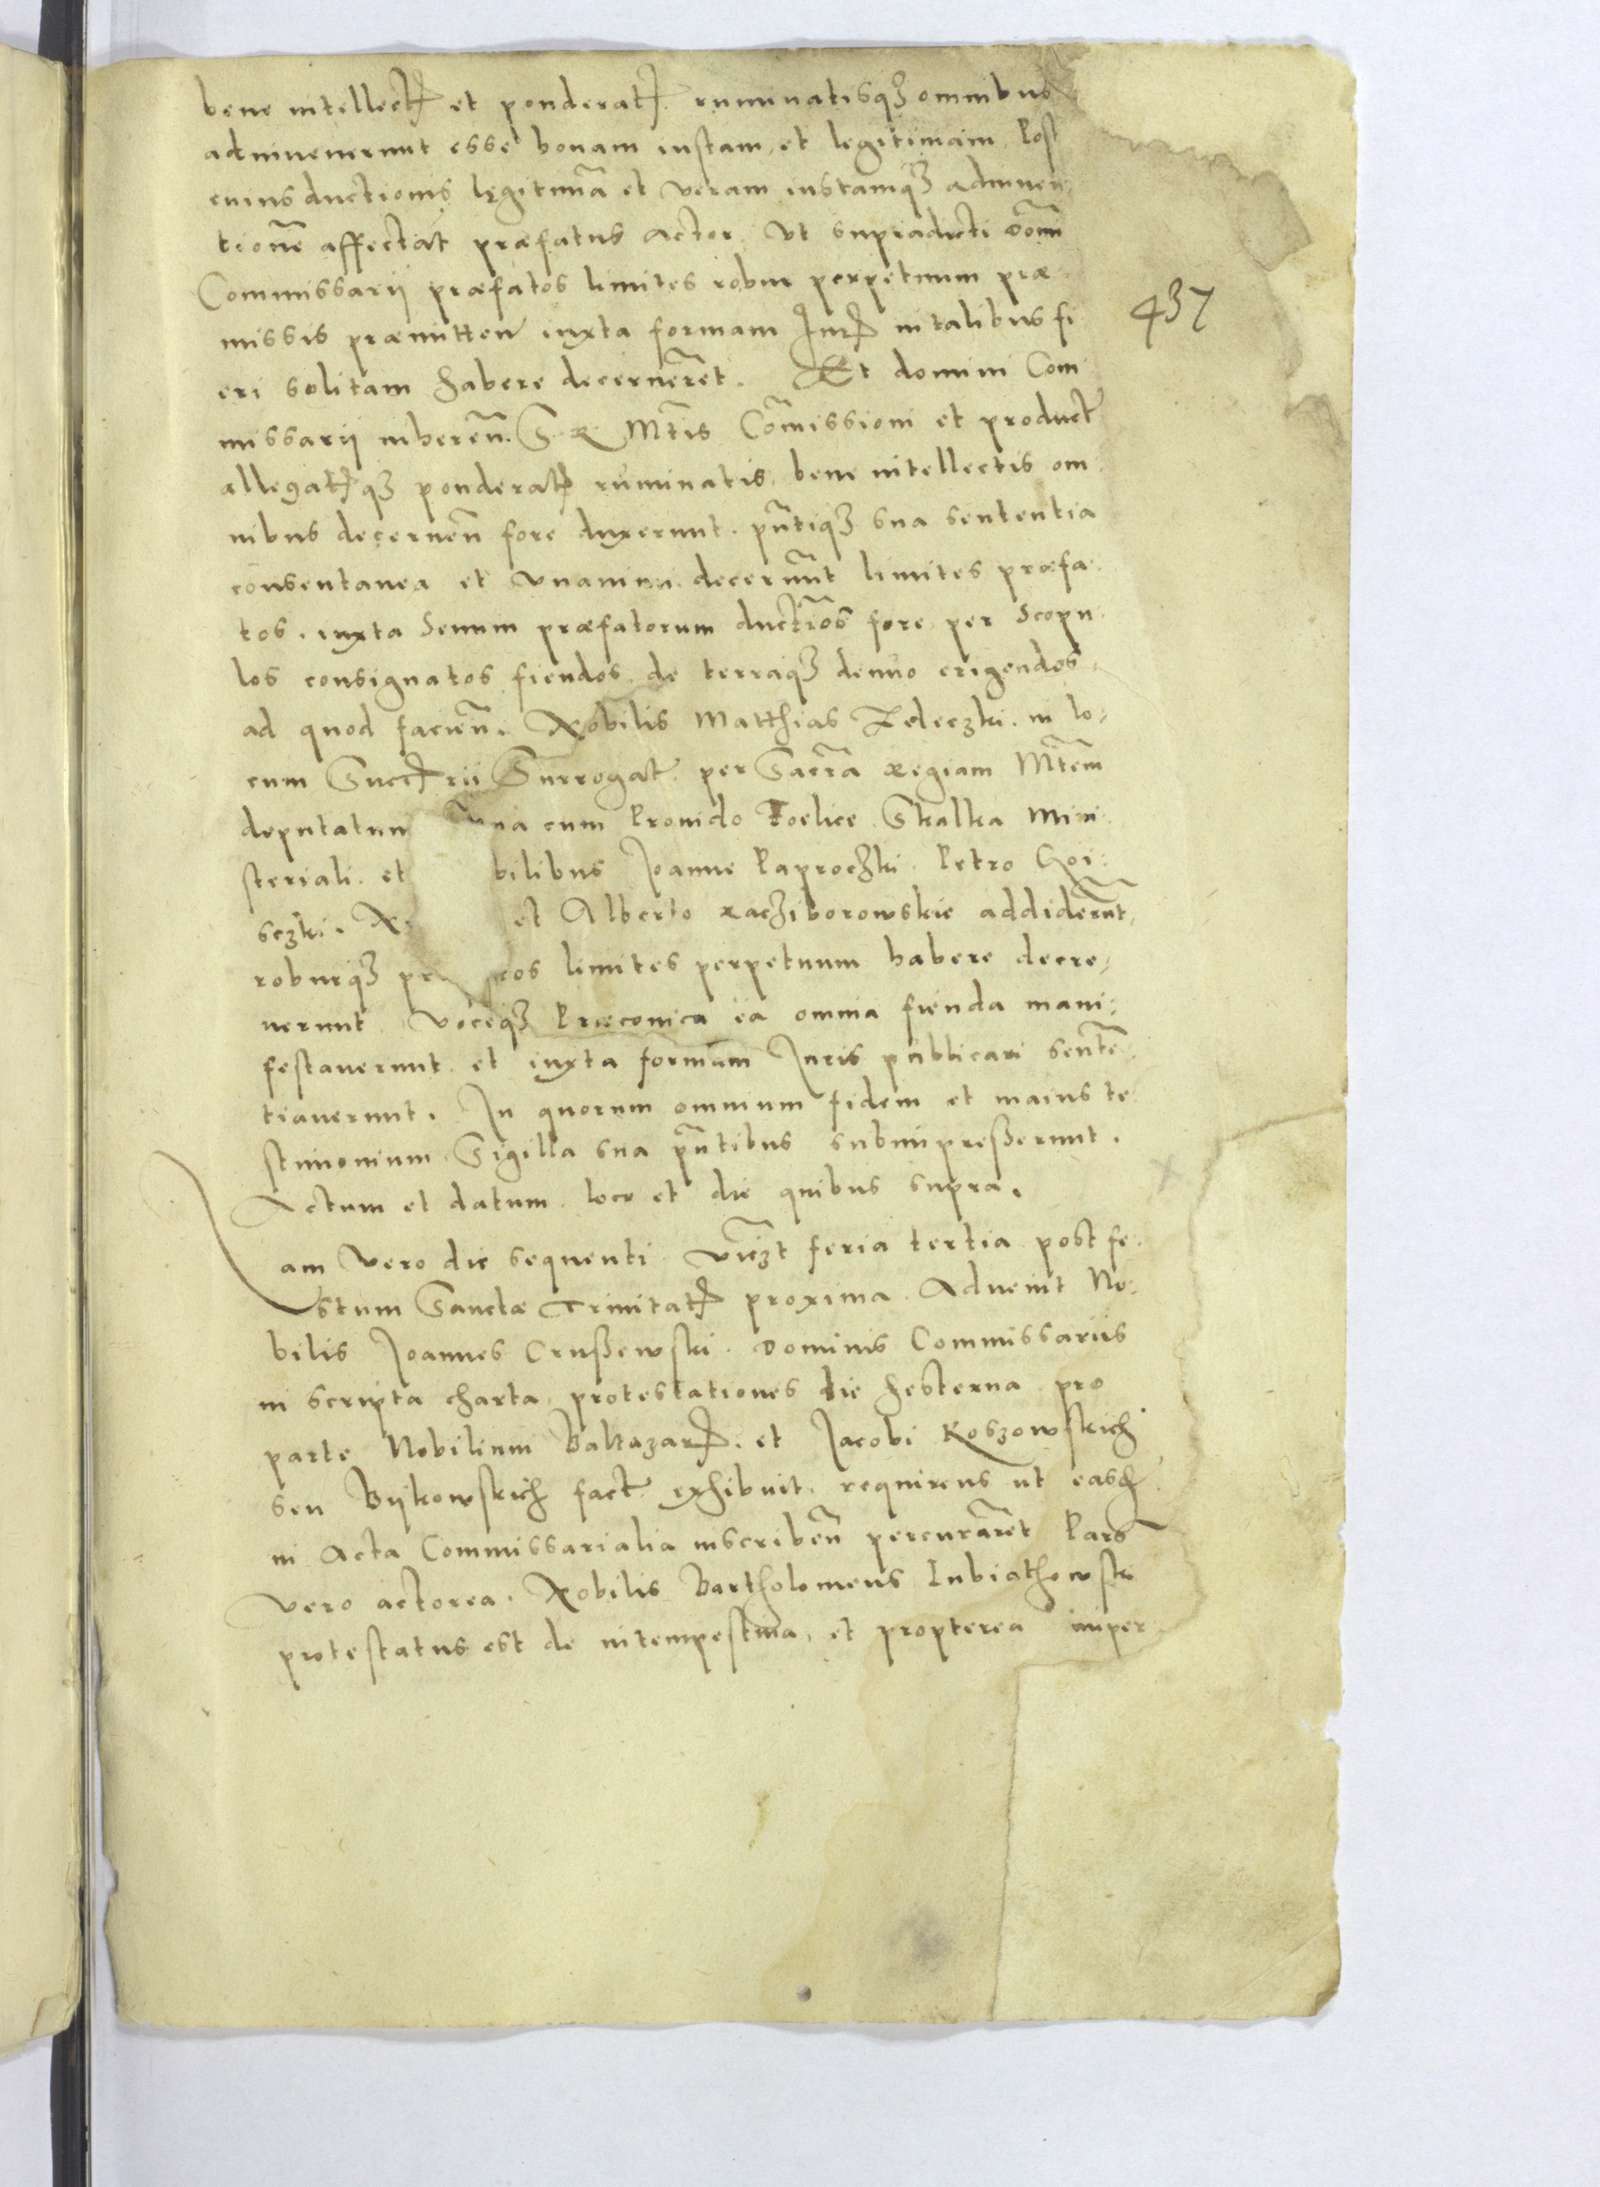 bene intellect et ponderat ruminatisq omnibus
adinvenerunt esse bonam iustam et legitimam Post
cuius ductionis legitima et veram iustamq adinven
tione affectat præfatus actor Vt supradicti domi
Commissarii præfatos limites robur perpetuum præ
missis præmitten iuxta formam Iur in talibus fi
437
eri solitam habere decerneret. Et domini Com
missarii inheren. S. R. Mtis Comissioni et product
allegatq ponderat ruminatis bene intellectis om
nibus decernen fore duxerunt. pntiq sua sententia
consentanea et vnanimi decerunt limites præfa
tos. iuxta Senum præfatorum ductios fore per Scopu
los consignatos fiendos de terraq denuo erigendos.
ad quod facien. Nobilis Matthias Zeleczki. in lo,
cum Succrii Surrogat per Sacra Regiam Mtem
deputatum vna cum Provido Foelice Skalka Mini
steriali. et bilibus Joanne Paproczki. Petro Goi:
sczki. N et Alberto Racziborowskie addiderunt
roburq pr tos limites perpetuum habere decre,
uerunt Voceq Præconica ea omnia fienda mani,
festauerunt et iuxta formam Juris publicari senten
tiauerunt. In quorum omnium fidem et maius te
stimonium Sigilla sua pntibus subimpreßerunt.
Actum et datum loco et die quibus supra.
am vero die sequenti. viczt feria tertia post fe
stum Sanctæ Trinitat proxima. Advenit No,
bilis Joannes Crußewski. Dominis Commissariis
in scripta charta protestationes die hesterna pro
parte Nobilium Baltazar. et Jacobi Koszowskich
seu Bykowskich fact exhibuit. requirens ut easd
in Acta Commissarialia inscriben percuraret Pars
vero actorea. Nobilis Bartholomeus Lubiathowski
protestatus est de intempestiua, et propterea imper